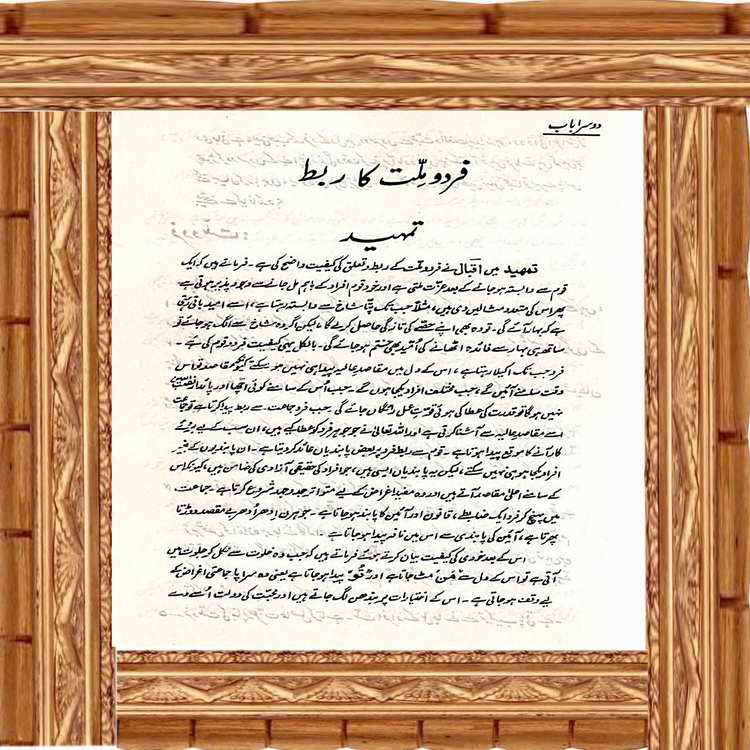 دوسرا باب
فرد و ملّت کا ربط
تمہید
تمہید میں اقبال نے فرد و ملّت کے ربط و تعلق کی کیفیت واضح کی ہے ۔ فرماتے ہیں کہ ایک
قوم سے وابستہ ہو جانے کے بعد عزّت ملتی ہے اور خود قوم افراد کے باہم مل جانے سے وجود پذیر ہوتی ہے
پھر اس کی متعدد مثالیں دی ہیں، مثلاً جب تک پتّا شاخ سے وابستہ رہتا ہے، اسے امید باقی رہتی
ہے کہ بہار آئے گی ۔ تو وہ بھی اپنے حصّے کی تازگی حاصل کرلے گا، لیکن اگر وہ شاخ سے الگ ہو جائے تو
ساتھ ہی بہار سے فائدہ اٹھانے کی اُمید بھی ختم ہو جائے گی ۔ بالکل یہی کیفیت فرد و قوم کی ہے ۔
فرد جب تک اکیلا رہتا ہے ، اس کے دل میں مقاصدِ عالیہ پیدا ہی نہیں ہو سکتے کیونکہ مقاصد تو اس
وقت سامنے آئیں گے، جب مختلف افراد یکجا ہوں گے ۔ جب اُس کے سامنے کوئی اچھا اور پائدار نصب العین
نہیں ہوگا تو قدرت کی عطا کی ہوئی قوّتِ عمل رائگاں جائے گی ۔ جب فرد جماعت سے ربط پیدا کرتا ہے تو جماعت
اسے مقاصدِ عالیہ سے آشنا کرتی ہے اور اللہ تعالیٰ نے جو جوہر فرد کو عطا کیے ہیں، ان سب کے بروئے
کار آنے کا موقع پیدا ہوتا ہے ۔ قوم سے ربط فرد پر بعض پابندیاں عائد کر دیتا ہے ۔ ان پابندیوں کے بغیر
افراد یکجا ہو ہی نہیں سکتے ، لیکن یہ پابندیاں ایسی ہیں، جو افراد کی حقیقی آزادی کی ضامن ہیں، کیونکہ اس
کے سامنے اعلیٰ مقاصد آتے ہیں اور وہ مفید اغراض کے لیے متواتر جدوجہد شروع کرتا ہے ۔ جماعت
میں پہنچ کر فرد ایک ضابطے ، قانون اور آئین کا پابند ہو جاتا ہے ۔ جو ہرن اِدھر اُدھر بے مقصد دوڑتا
پھرتا ہے، آئین کی پابندی سے اس میں نافہ پیدا ہو جاتا ہے
اس کے بعد خودی کی کیفیت بیان کرتے ہوئے فرماتے ہیں کہ جب وہ خلوت سے نکل کر جلوت میں
آتی ہے تو اس کے دل سے مَیں مٹ جاتا ہے اور تُو پیدا ہو جاتا ہے یعنی وہ سراپا جماعتی اغراض کے
لیے وقف ہو جاتی ہے ۔ اس کے اختیارات پر بندھن لگ جاتے ہیں اور محبّت کی دولت اُسے دے